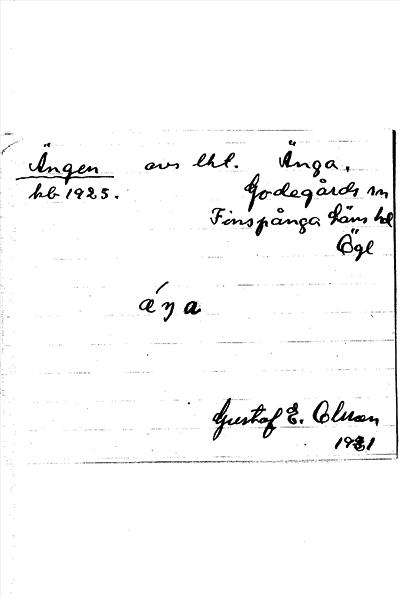 Ängen avs lht. Änga.
kb 1925. Godegårds sn
Finspånga läns hd
Ögl
áŋa
Gustaf E. Olsson
1931